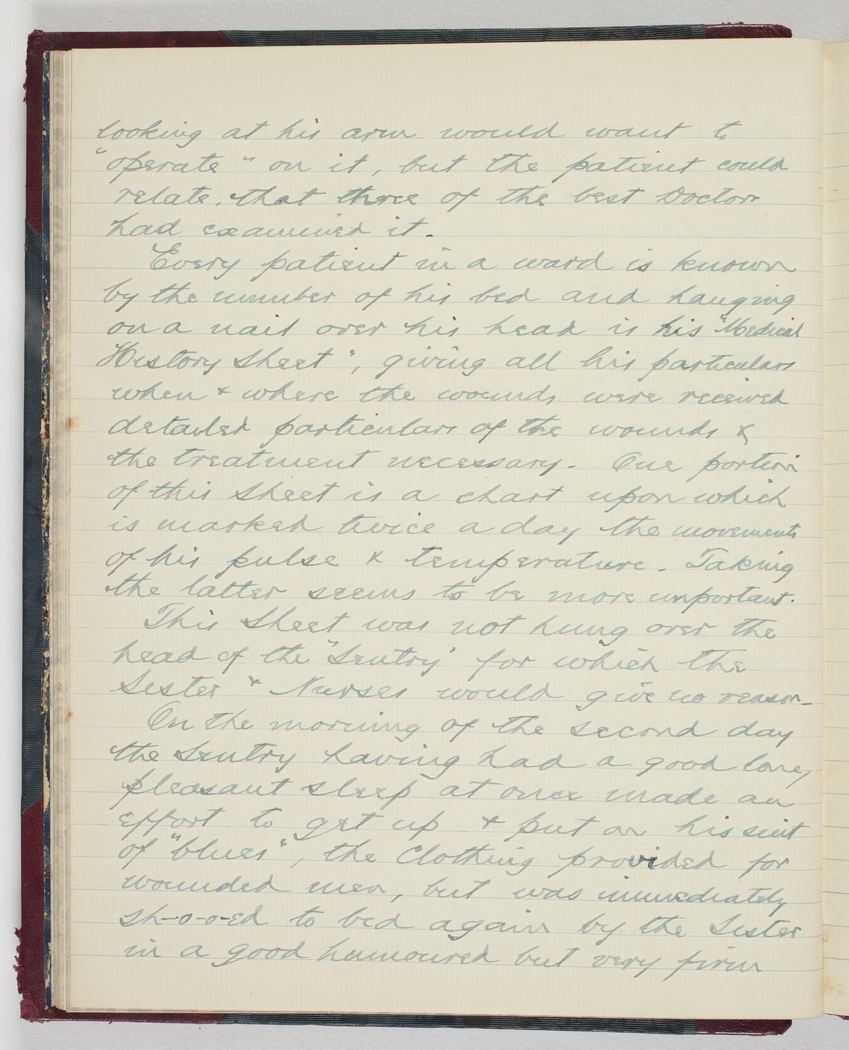 looking at his arm would want to
"operate" on it, but the patient could
relate, that three of the best Doctors
had examined it.
Every patient in a ward is known
by the number of his bed and hanging
on a nail over his head is his "Medical
History Sheet", giving all his particulars
when & where the wounds were received
detailed particulars of the wounds &
the treatment necessary. One portion
of this Sheet is a chart upon which
is marked twice a day the movements
of his pulse & temperature. Taking
the latter seems to be more important.
This Sheet was not hung over the
head of the "Sentry" for which the
Sister & Nurses would give no reason.
On the morning of the second day
the Sentry having had a good long
pleasant sleep at once made an
effort to get up & put on his suit
of "blues", the Clothing provided for
wounded men, but was immediately
sh-o-o-ed to bed again by the Sister
in a good humoured but very firm